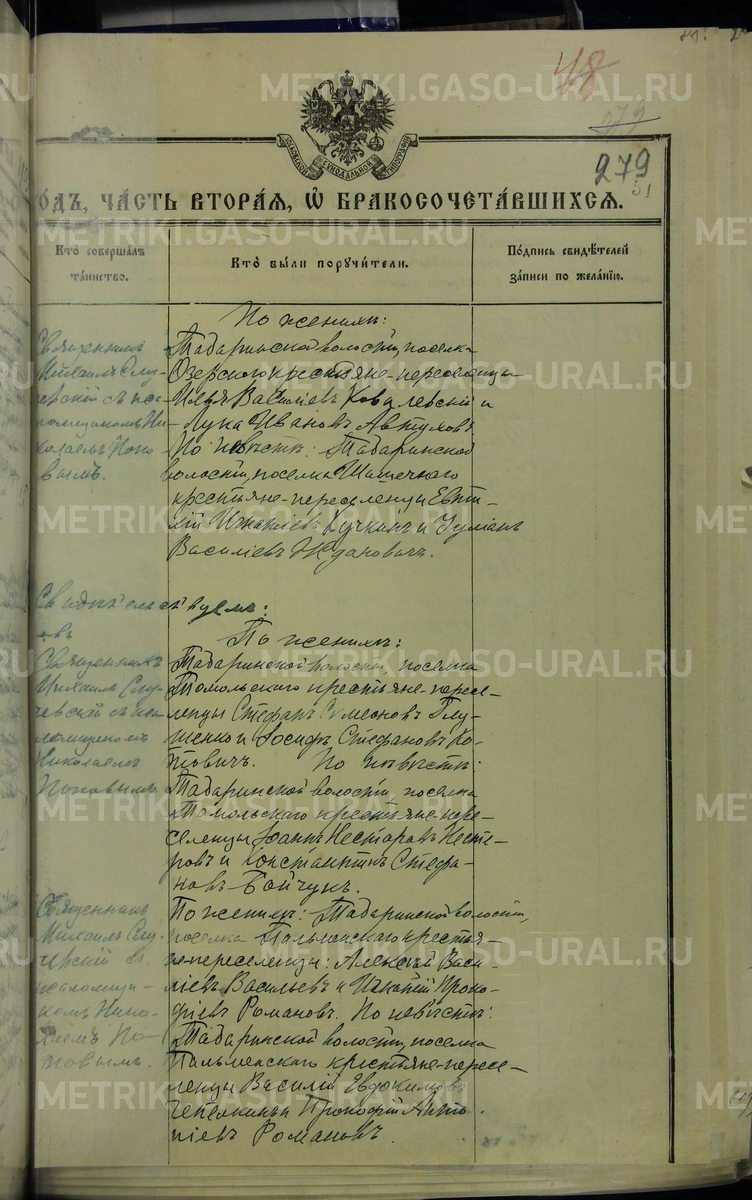 48
279
279
51
МОСКОВСКОЙ СѴНОДАЛЬНОЙ ТИПОГРАФІИ
ОДЪ, ЧА́СТЬ ВТОРА́Я, Ѡ҆ БРАКОСОЧЕТА́ВШИХСЯ.
Кто̀ соверша́лъ та́инство.
Кто̀ бы́ли поручи́тели.
По́дпись свидѣ́телей за́писи по жела́нїю.
Священникъ
Михаилъ Слу-
чевскій съ пса-
ломщикомъ Ни-
колаемъ Попо-
вымъ.
По женихѣ:
Табаринской волости, поселка
Озерскаго крестьяне-переселенцы
Илья Василіевъ Ковалевскій и
Лука Ивановъ
По невѣстѣ: Табаринской
волости, поселка
крестьяне-переселенцы Евти-
хій Игнатіевъ Кучкинъ и
Василіевъ Ждановичъ.
Свидѣтельствуемъ:
Священникъ
Михаилъ Слу-
чевскій съ пса-
ломщикомъ
Николаемъ
Поповымъ.
По женихѣ:
Табаринской волости, поселка
Томольскаго крестьяне-пересе-
ленцы Стефанъ Симеоновъ Глу-
шенко и Іосифъ Стефановъ Ко-
товичъ. По невѣстѣ:
Табаринской волости, поселка
Томольскаго крестьяне-пере-
селенцы Іоаннъ Несторовъ Несте-
ровъ и Константинъ Стефа-
новъ Бойчукъ.
Священникъ
Михаилъ Слу-
чевскій съ
псаломщи-
комъ Нико-
лаемъ По-
повымъ.
По женихѣ: Табаринской волости,
поселка Пальменскаго крестья-
не-переселенцы: Алексѣй Васи-
ліевъ Васильевъ и Проко-
фіевъ Романовъ. По невѣстѣ:
Табаринской волости, поселка
Пальменскаго крестьяне-пересе-
ленцы Василій Евдокимовъ
Чепелкинъ и Прокофій Анто-
ніевъ Романовъ.
METRIKI.GASO-URAL.RU